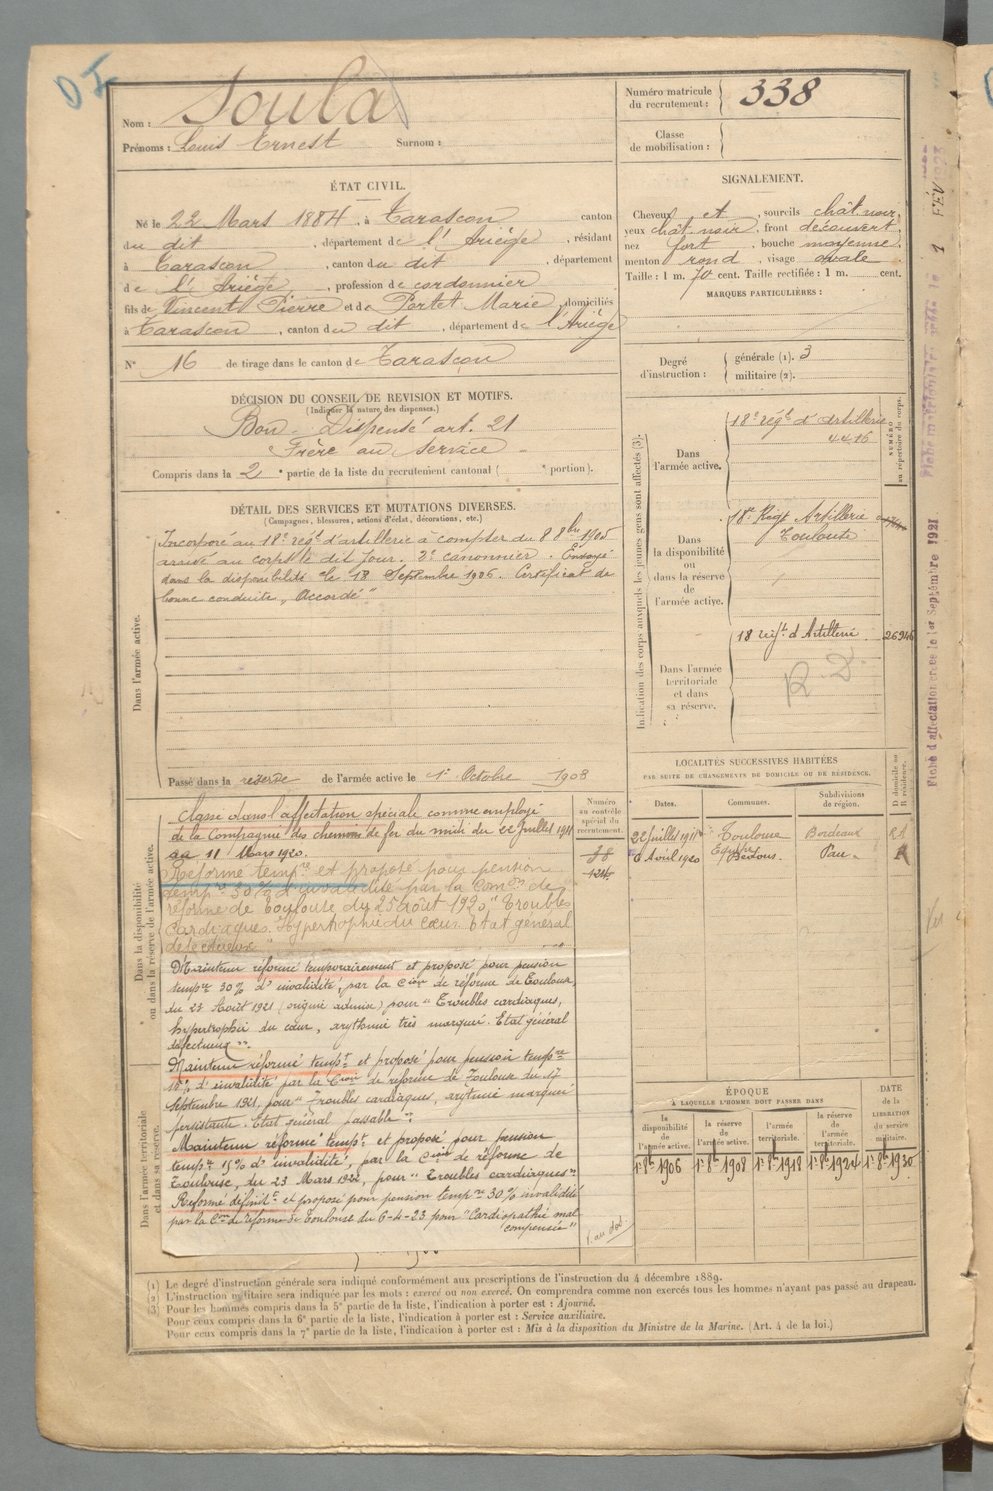 D I
Nom : Soula
Prénoms : Louis Ernest Surnom :
Numéro matricule
du recrutement : 338
Classe
de mobilisation :
ÉTAT CIVIL.
Né le 22 Mars 1884, à Tarascon canton
du dit, département de l'Ariège, résidant
à Tarascon, canton du dit, département
de l'Ariège, profession de cordonnier
fils de Vincent Pierre et de Portet Marie, domiciliés
à Tarascon, canton du dit, département de l'Ariège
N° 16 de tirage dans le canton de Tarascon
SIGNALEMENT.
Cheveux et, sourcils chât noir,
yeux chât noir, front découvert,
nez fort, bouche moyenne,
menton rond, visage ovale
Taille : 1 m. 70 cent. Taille rectifiée : 1 m. cent.
MARQUES PARTICULIÈRES :
Degré
d'instruction :
générale (1). 3
militaire (2).
DÉCISION DU CONSEIL DE REVISION ET MOTIFS.
(Indiquer la nature des dispenses.)
Bon - Dispensé art. 21
Frère au service
Compris dans la 2e partie de la liste du recrutement cantonal ( e portion).
DÉTAIL DES SERVICES ET MUTATIONS DIVERSES.
(Campagnes, blessures, actions d'éclat, décorations, etc.)
Dans l'armée active.
Incorporé au 18e régt d'artillerie à compter du 8 8bre 1905
arrivé au corps le dit jour. 2e canonnier. Envoyé
dans la disponibilité le 18 Septembre 1906. Certificat de
bonne conduite „ Accordé "
Passé dans la réserve de l'armée active le 1er Octobre 1908
Indication des corps auxquels les jeunes gens sont affectés (3).
NUMÉRO
au répertoire du corps.
Dans
l'armée active.
18e régt d'Artillerie
4416
Dans
la disponibilité
ou
dans la réserve
de
l'armée active.
18e Régt Artillerie
Toulouse
Dans l'armée
territoriale
et dans
sa réserve.
18 régt d'Artillerie 26946
R. D.
Dans la disponibilité
ou dans la réserve de l'armée active.
Dans l'armée territoriale
et dans sa réserve.
Numéro
au contrôle
spécial du
recrutement.
Classé dans l'affectation spéciale comme employé
de la Compagnie des chemins de fer du midi du 22 juillet 1911
au 11 Mars 1920.
Réformé tempre et proposé pour pension
tempre 30% d'invalidité par la Comon de
réforme de Toulouse du 25 août 1920 " Troubles
cardiaques. Hypertrophie du cœur. Etat général
défectueux "
Maintenu réformé temporairement et proposé pour pension
tempre 30% d'invalidité, par la Cion de réforme de Toulouse,
du 23 Août 1921 (origine admise) pour " Troubles cardiaques,
hypertrophie du cœur, arythmie très marquée. Etat général
défectueux ".
Maintenu réformé tempt et proposé pour pension tempre
10% d'invalidité par la Cion de réforme de Toulouse du 17
Septembre 1921, pour " Troubles cardiaques, arytmie marquée
persistante. Etat général passable ".
Maintenu réformé tempt et proposé pour pension
tempre 15% d'invalidité, par la Cion de réforme de
Toulouse, du 23 Mars 1922, pour " Troubles cardiaques "
Réformé définitt et proposé pour pension tempre 30% invalidité
par la Con de réforme de Toulouse du 6-4-23 pour " Cardiopathie mal
compensée "
LOCALITÉS SUCCESSIVES HABITÉES
PAR SUITE DE CHANGEMENTS DE DOMICILE OU DE RÉSIDENCE.
Dates. Communes. Subdivisions
de région. D domicile ou
R résidence.
22 juillet 1911 Toulouse Bordeaux
Avril 1920 Bedous. Pau. R
ÉPOQUE
À LAQUELLE L'HOMME DOIT PASSER DANS
la
disponibilité
de
l'armée active.
la réserve
de
l'armée active.
l'armée
territoriale.
la réserve
de
l'armée
territoriale.
DATE
de la
LIBÉRATION
du service
militaire.
1er 8bre 1906 1er 8bre 1908 1er 8bre 1918 1er 8bre 1924 1er 8bre 1930
Fiche d'affectation créée le 1er Septembre 1921
Fiche matriculaire créée le 1 FEV 1923
(1) Le degré d'instruction générale sera indiqué conformément aux prescriptions de l'instruction du 4 décembre 1889.
(2) L'instruction militaire sera indiquée par les mots : exercé ou non exercé. On comprendra comme non exercés tous les hommes n'ayant pas passé au drapeau.
(3) Pour les hommes compris dans la 5e partie de la liste, l'indication à porter est : Ajourné.
Pour ceux compris dans la 6e partie de la liste, l'indication à porter est : Service auxiliaire.
Pour ceux compris dans la 7e partie de la liste, l'indication à porter est : Mis à la disposition du Ministre de la Marine. (Art. 4 de la loi.)